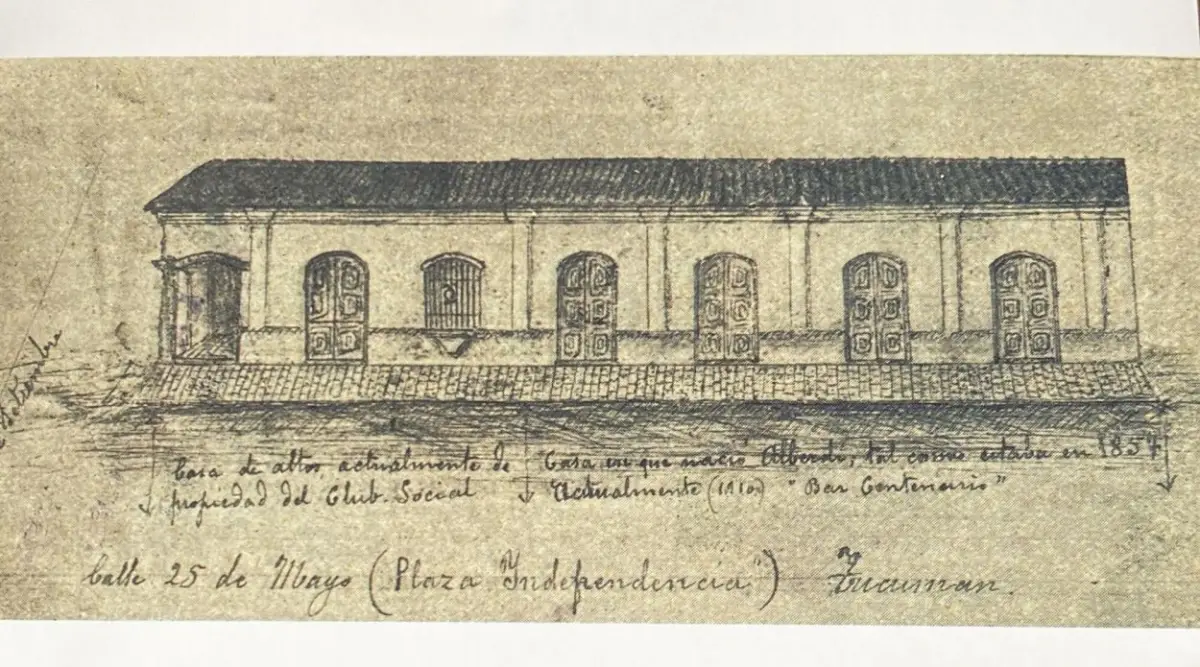 Casa de altos, actualmente de
propiedad del Club. Social
Casa en que nació Alberdi, tal como estaba en 1857
Actualmente (1910) "Bar Centenario"
Calle 25 de Mayo (Plaza Independencia") Tucuman.